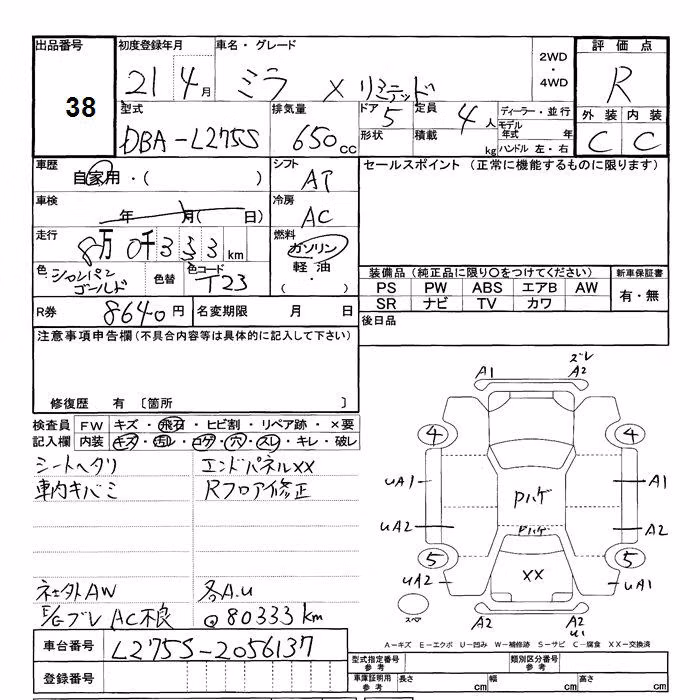 出品番号 38
初度登録年月 21 4月
車名・グレード ミラ X リミテッド
2WD・4WD
評価点 R
型式 DBA-L275S
排気量 650cc
ドア 5
形状
定員 4人
積載 kg
ディーラー・並行
モデル年式 年
ハンドル 左・右
外装 内装
C C
車歴 自家用・( )
シフト AT
セールスポイント(正常に機能するものに限ります)
車検 年 月( 日)
冷房 AC
走行 8万0千333km
燃料 ガソリン
軽油
・( )
色 シャンパンゴールド
色替
色コード T23
装備品(純正品に限り○をつけてください)
PS PW ABS エアB AW
SR ナビ TV カワ
新車保証書
有・無
R券 8640円
名変期限 月 日
後日品
注意事項申告欄(不具合内容等は具体的に記入して下さい)
修復歴 有〔箇所 〕
検査員記入欄
FW キズ・飛石・ヒビ割・リペア跡・×要
内装 キズ・汚レ・コゲ・穴・スレ・キレ・破レ
シートヘタリ エンドパネルXX
車内キバミ Rフロア修正
社外AW 各A.U
E/Gブレ AC不良 @80333km
車台番号 L275S-2056137
登録番号
ズレ
A1 A2
4 4
UA1 Pハゲ A1
UA2 Pハゲ A2
5 5
UA2 XX UA1
スペア
A2 A2
U1
A-キズ E-エクボ U-凹み W-補修跡 S-サビ C-腐食 XX-交換済
型式指定番号 参考
類別区分番号 参考
車庫証明用 参考 長さ cm 幅 cm 高さ cm